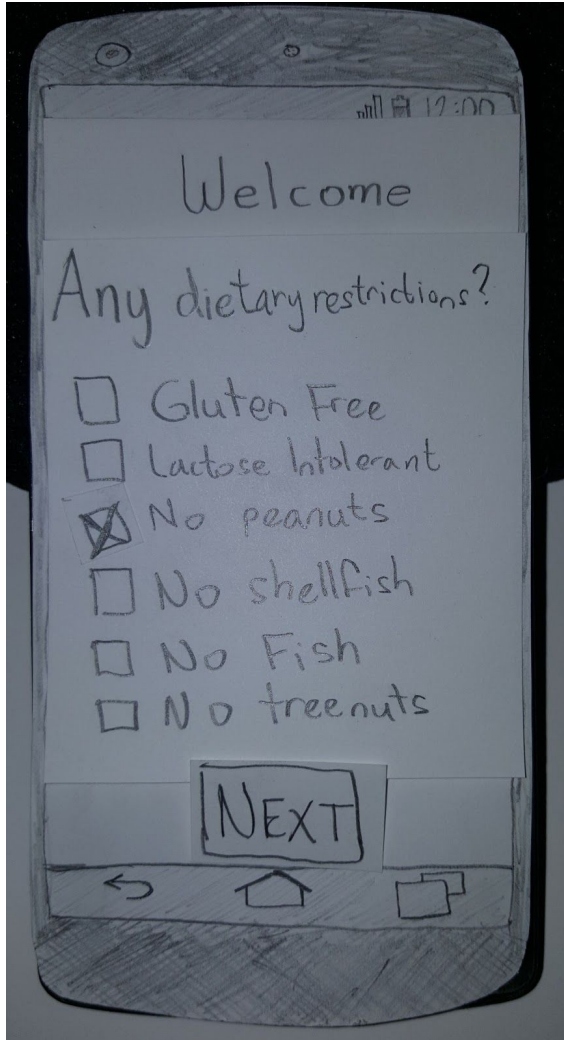 12:00
Welcome
Any dietary restrictions?
Gluten Free
Lactose Intolerant
No peanuts
No shellfish
No Fish
No treenuts
NEXT